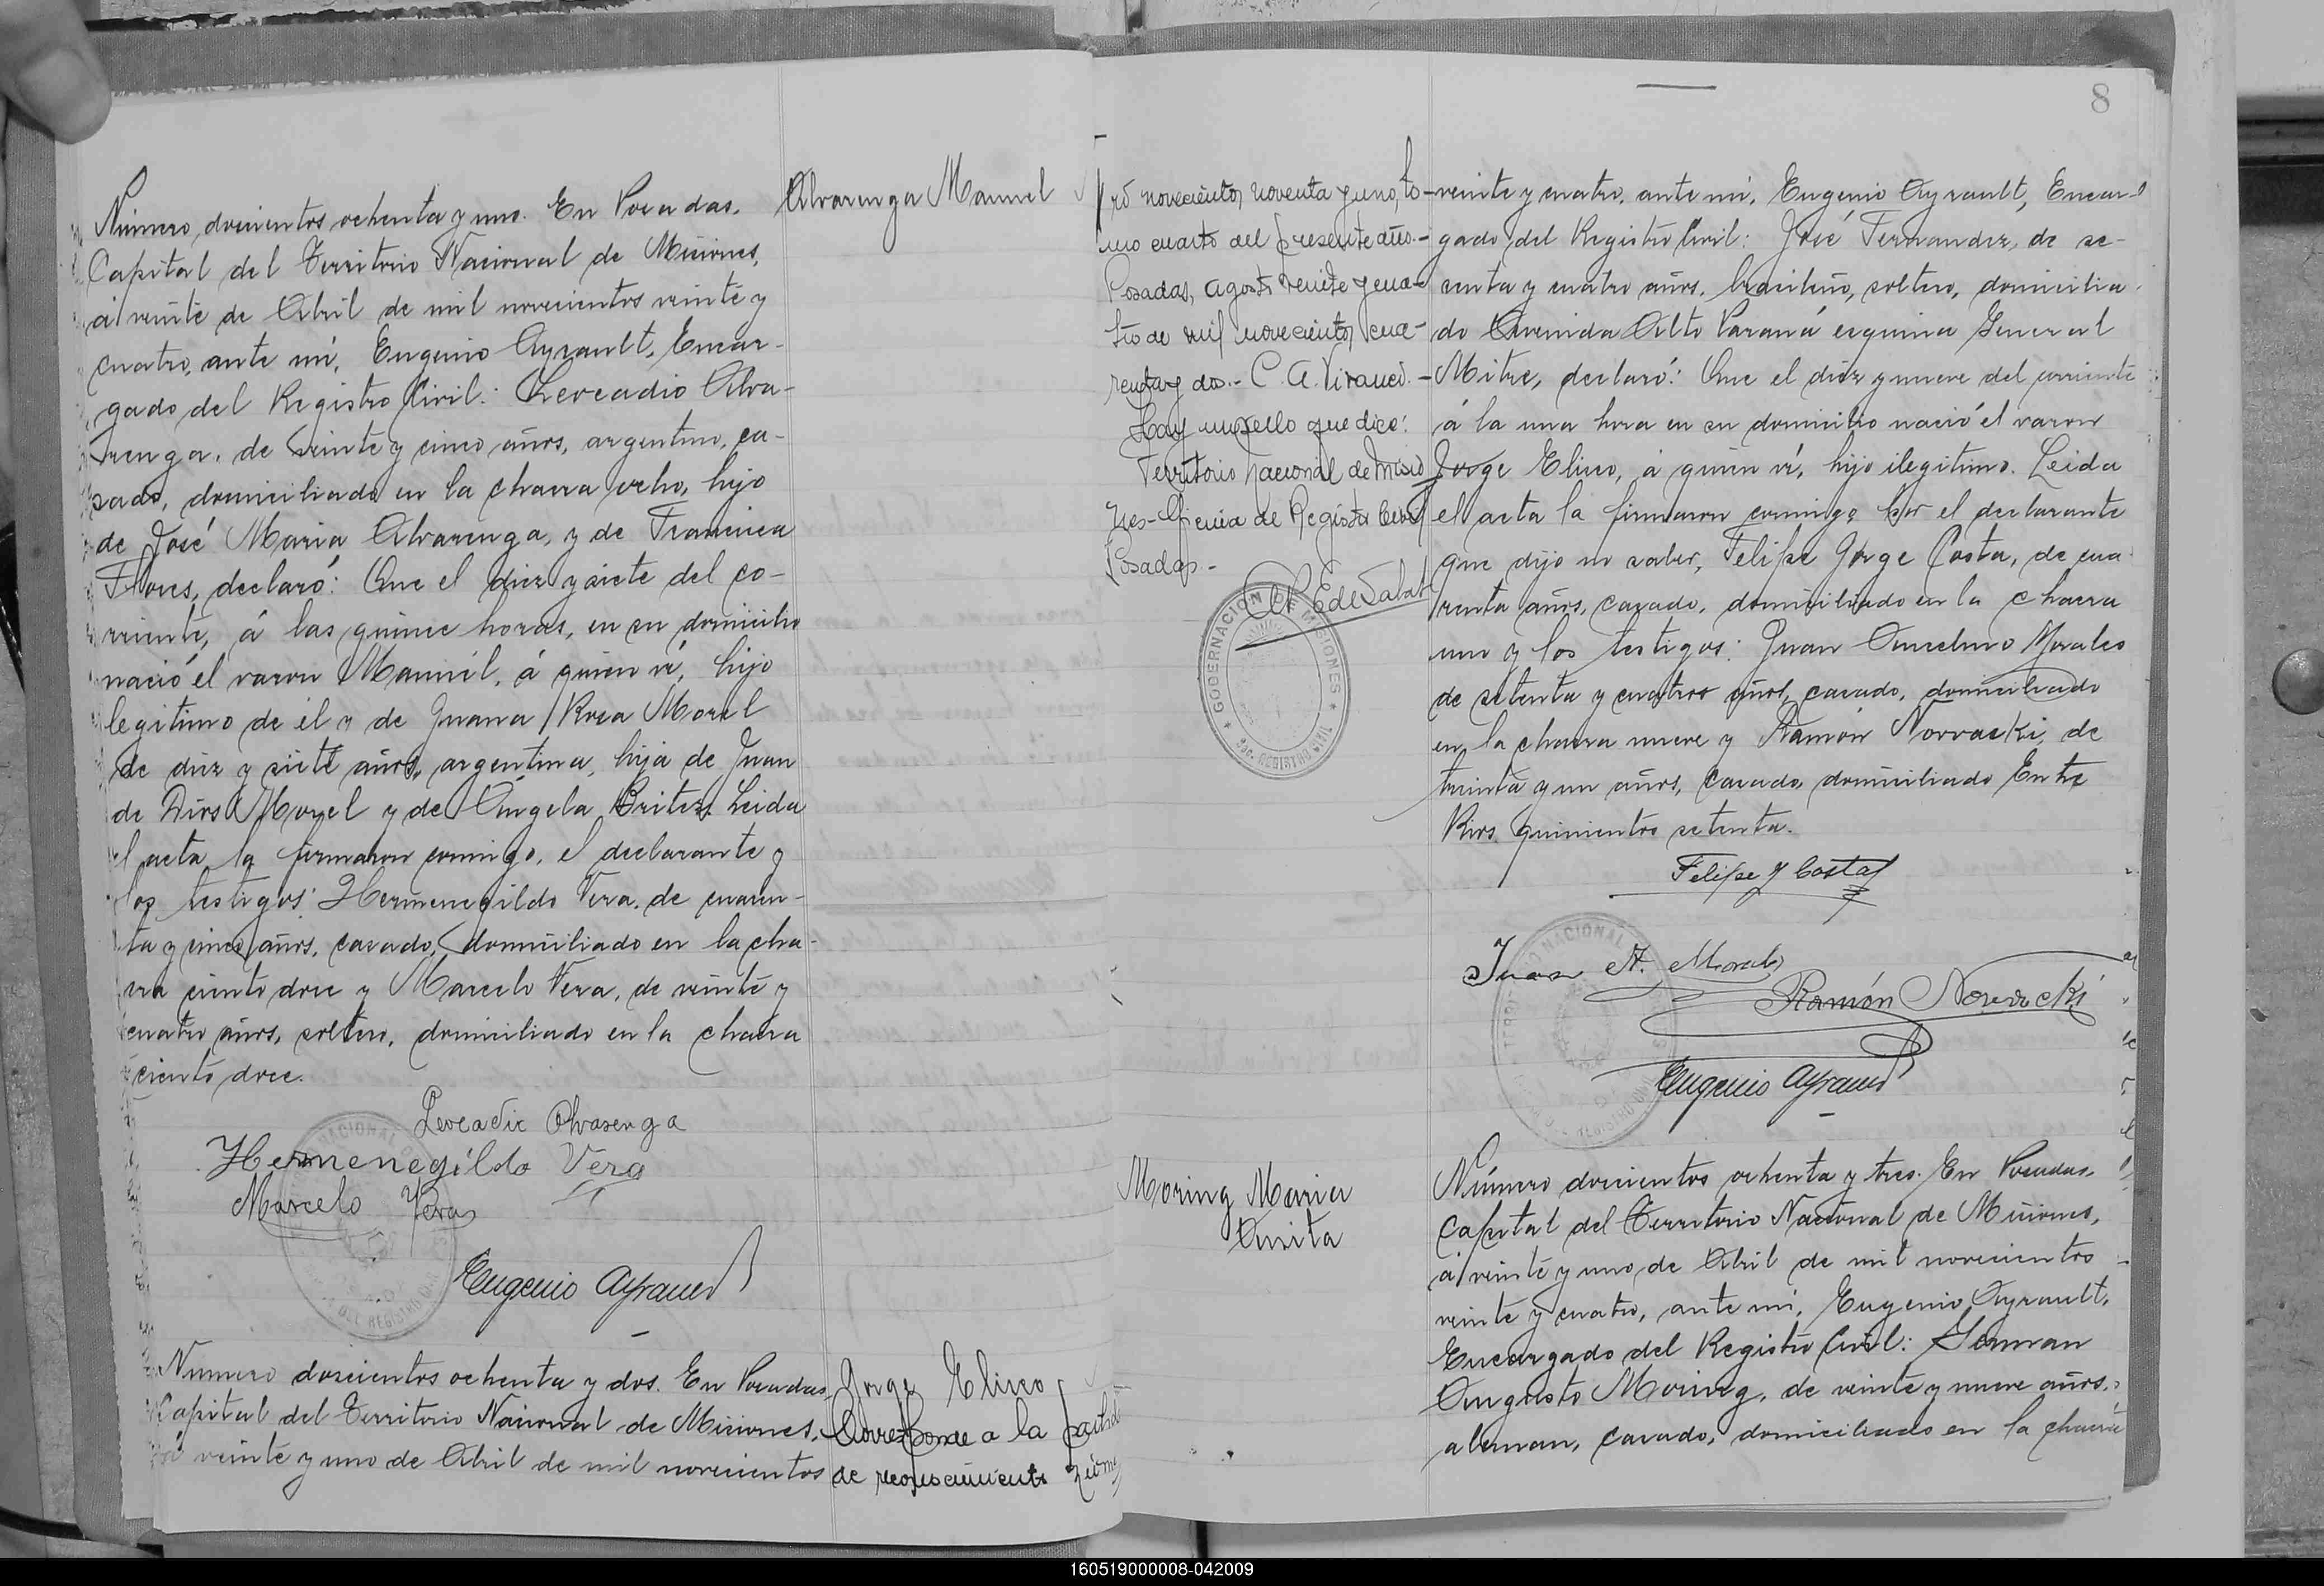 Número doscientos ochenta y uno. En Posadas,
Capital del Territorio Nacional de Misiones,
á veinte de Abril de mil novecientos veinte y
cuatro, ante mí, Eugenio Ayrault, Encar-
gado del Registro Civil: Leocadio Alva-
renga, de veinte y cinco años, argentino, ca-
sado, domiciliado en la chacra ocho, hijo
de José Maria Alvarenga, y de Francisca
Flores, declaró: Que el diez y siete del co-
rriente, á las quince horas, en su domicilio
nació el varon Manuel, á quien ví, hijo
legitimo de él y de Juana Rosa Morel
de diez y siete años, argentina, hija de Juan
de Dios Morel y de Angela Britez. Leida
el acta la firmaron conmigo, el declarante y
los testigos: Hermenegildo Vera, de cuaren-
ta y cinco años, casado, domiciliado en la cha-
cra ciento doce y Marcelo Vera, de veinte y
cuatro años, soltero, domiciliado en la chacra
ciento doce.
Leocadio Alvarenga
Hermenegildo Vera
Marcelo Vera
Eugenio Ayrault
Número doscientos ochenta y dos. En Posadas
Capital del Territorio Nacional de Misiones,
á veinte y uno de Abril de mil novecientos
Alvarenga Manuel
Jorge Eliseo
Corresponde a la partida
de reconocimiento
novecientos noventa y uno, to-
mo cuarto del presente año.-
Posadas, agosto veinte y cua-
tro de mil novecientos cua-
renta y dos.- C. A. Vivanco.-
Hay un sello que dice:
Territorio Nacional de Misio
nes- Oficina de Registro Civil
Posadas.-
GOBERNACION DE MISIONES
8
veinte y cuatro, ante mí, Eugenio Ayrault, Encar-
gado del Registro Civil: José Fernandez, de se-
senta y cuatro años, brasileño, soltero, domicilia-
do Avenida Alto Paraná esquina General
Mitre, declaró: Que el diez y nueve del corriente
á la una hora en su domicilio nació el varon
Jorge Eliseo, á quien ví, hijo ilegitimo. Leida
el acta la firmaron conmigo por el declarante
que dijo no saber, Felipe Jorge Costa, de cua-
renta años, casado, domiciliado en la chacra
uno y los testigos: Juan Anselmo Morales
de setenta y cuatro años, casado, domiciliado
en la chacra nueve y Ramón Novvacki, de
treinta y un años, casado, domiciliado Entre
Rios quinientos setenta.
Felipe J Costa
Juan A. Morales
Ramón Novvacki
Eugenio Ayrault
Moring Maria
Anita
Número doscientos ochenta y tres. En Posadas,
Capital del Territorio Nacional de Misiones,
á veinte y uno de Abril de mil novecientos
veinte y cuatro, ante mí, Eugenio Ayrault,
Encargado del Registro Civil: German
Augusto Moring, de veinte y nueve años,
aleman, casado, domiciliado en la chacra
160519000008-042009